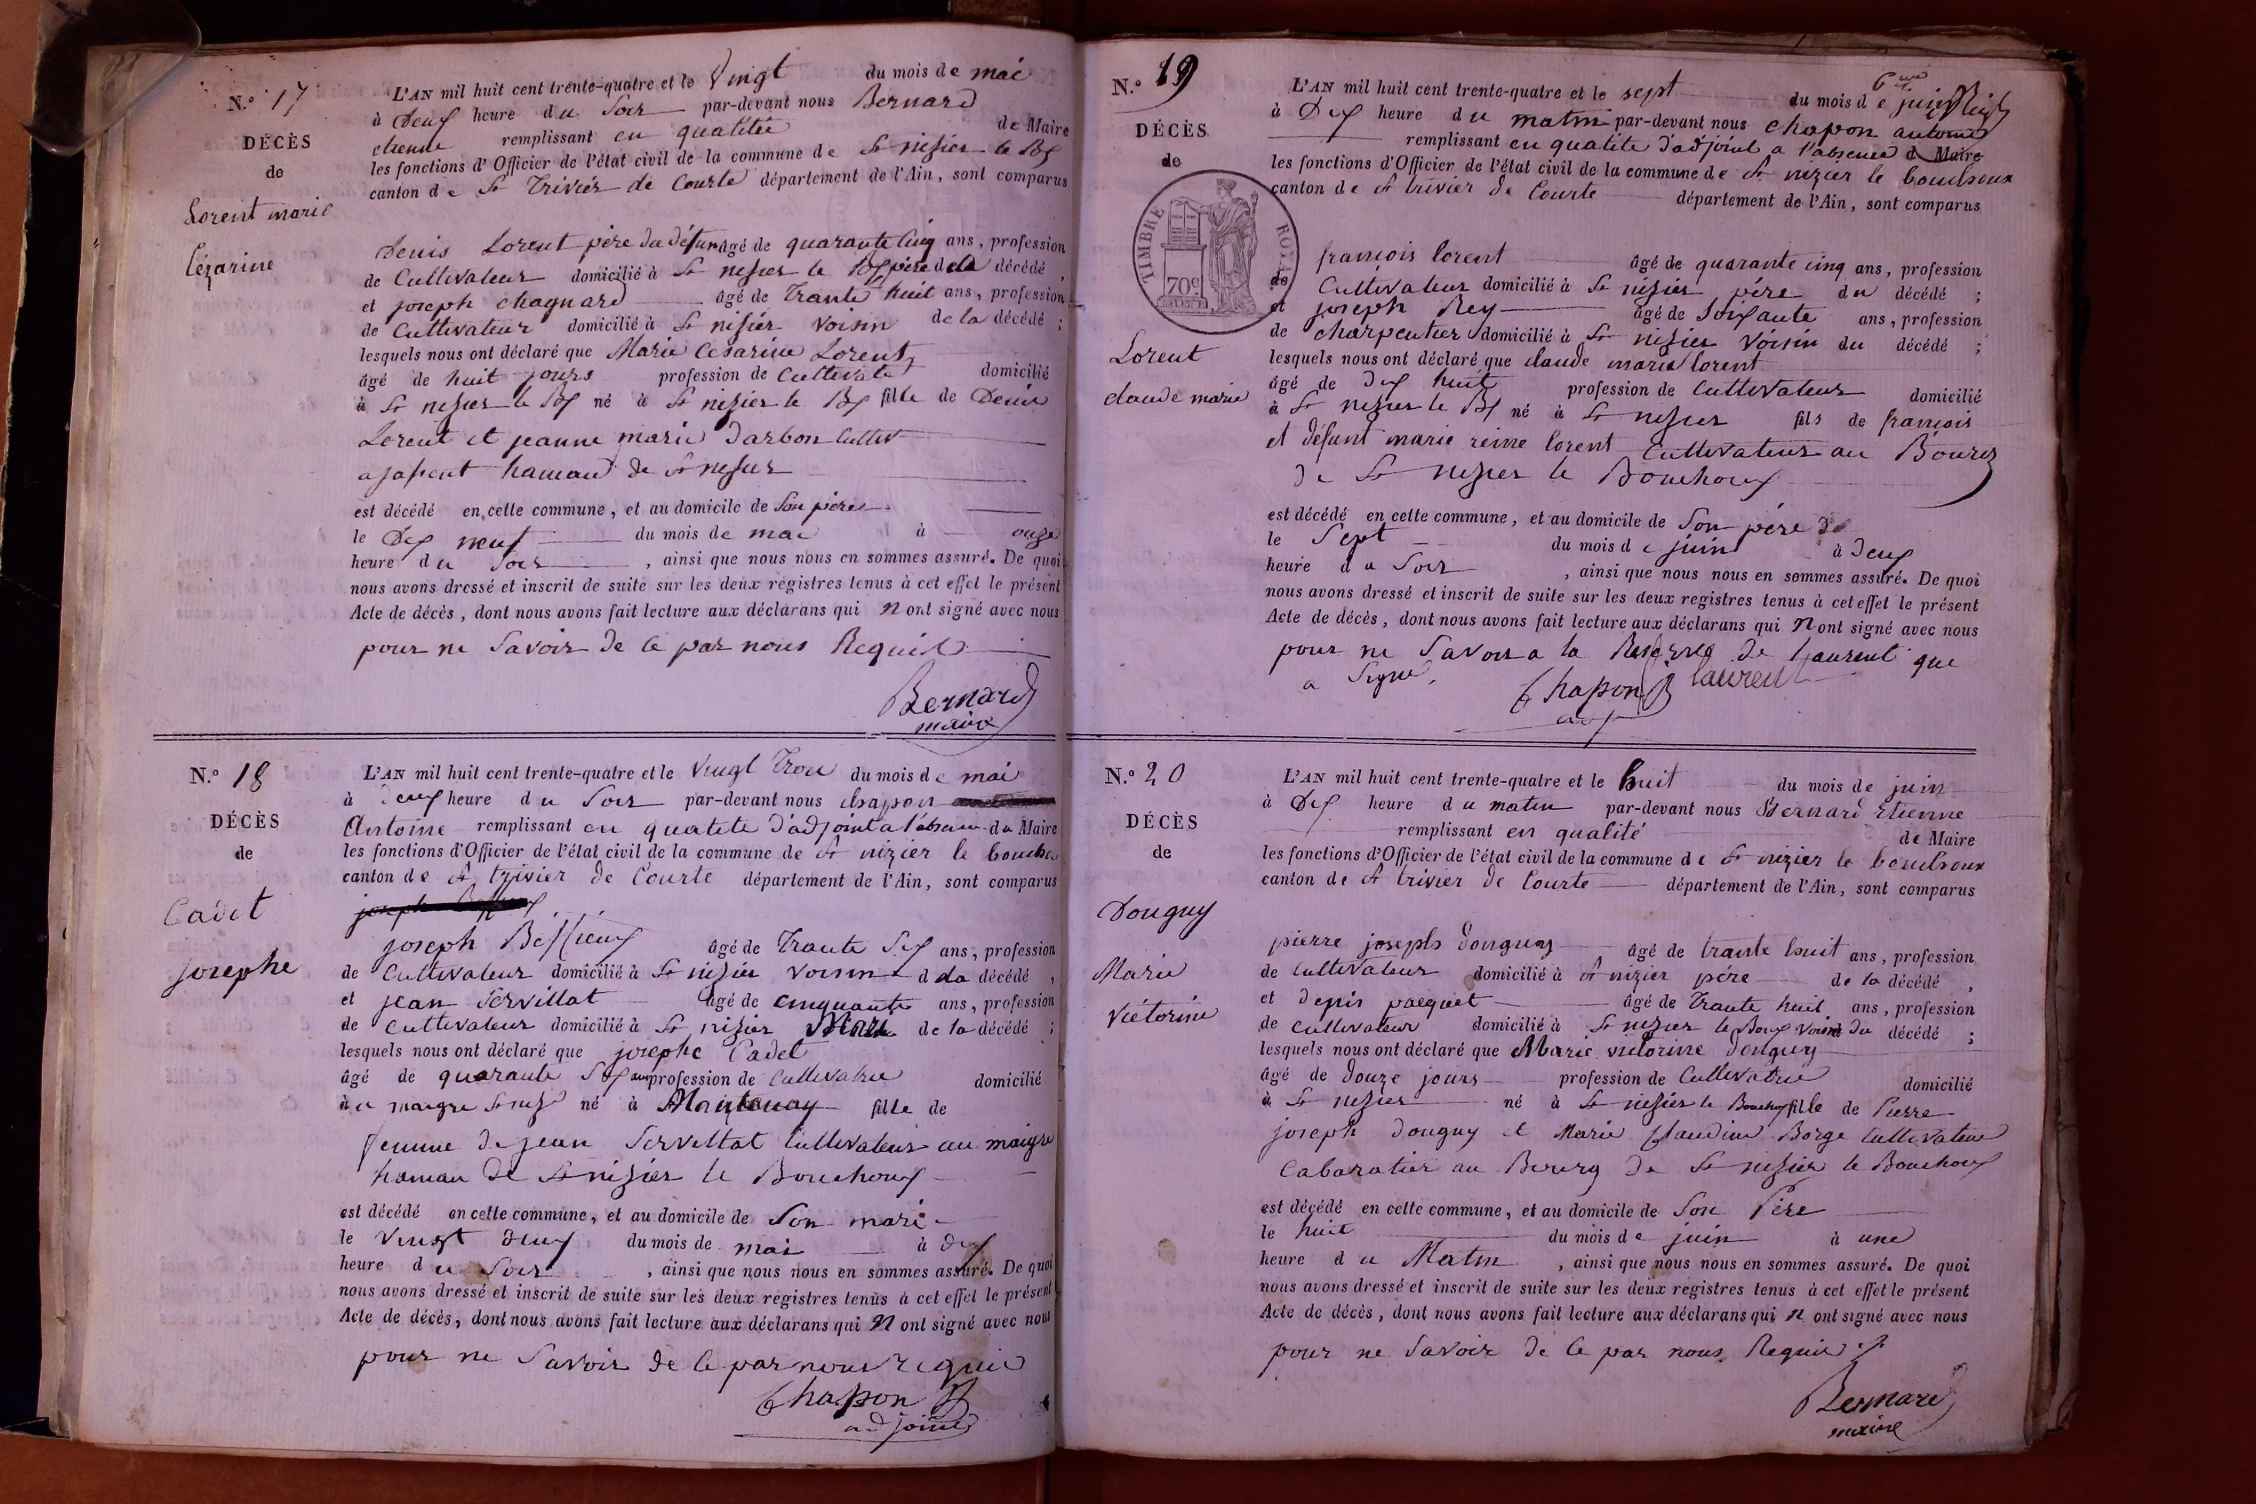 N.° 17
DÉCÈS
de
Lorent marie
Cézarine
L'AN mil huit cent trente-quatre et le Vingt du mois de mai
à Deux heure du Soir par-devant nous Bernard
etienne remplissant en qualitée de Maire
les fonctions d'Officier de l'état civil de la commune de St nisier le Bx
canton de St Trivier de Courte département de l'Ain, sont comparus
Denis Lorent père du défun âgé de quarante Cinq ans, profession
de Cultivateur domicilié à St nisier le Bx père dela décédé,
et joseph chagnard âgé de Trante huit ans, profession
de Cultivateur domicilié à St nisier Voisin de la décédé;
lesquels nous ont déclaré que Marie Cesarine Lorent
âgé de huit jours profession de Cultivate domicilié
à St nisier le Bx né à St nisier le Bx fille de Denis
Lorent et jeanne marie Darbon Cultiv
hamau de St nisier
est décédé en cette commune, et au domicile de Son père
le Dix neuf du mois de mai à onze
heure du Soir, ainsi que nous nous en sommes assuré. De quoi
nous avons dressé et inscrit de suite sur les deux registres tenus à cet effet le présent
Acte de décès, dont nous avons fait lecture aux déclarans qui n ont signé avec nous
pour ne Savoir de ce par nous Requis
Bernard
maire
N.° 18
DÉCÈS
de
Cadet
josephe
L'AN mil huit cent trente-quatre et le Vingt Trois du mois de mai
à Deux heure du Soir par-devant nous chapon
Antoine remplissant en qualite d'adjoint a l'absence du Maire
les fonctions d'Officier de l'état civil de la commune de St nizier le bouchou
canton de St trivier de Courte département de l'Ain, sont comparus
joseph
joseph Béssieux âgé de Trante Six ans, profession
de Cultivateur domicilié à St nisier voisin dela décédé,
et jean Servillat âgé de cinquante ans, profession
de Cultivateur domicilié à St nisier Mari de la décédé;
lesquels nous ont déclaré que josephe Cadet
âgé de quarante Six ans profession de Cultivatrie domicilié
au maigre St nisier né à Mantenay fille de
femme de jean Servillat Cultivateur au maigre
hamau de St nisier le Bouchoux
est décédé en cette commune, et au domicile de Son mari
le Vingt deux du mois de mai à dix
heure du Soir, ainsi que nous nous en sommes assuré. De quoi
nous avons dressé et inscrit de suite sur les deux registres tenus à cet effet le présent
Acte de décès, dont nous avons fait lecture aux déclarans qui n ont signé avec nous
pour ne Savoir de ce par nous requis
Chapon
adjoint
N.° 19
DÉCÈS
de
TIMBRE ROYAL
70c
Lorent
claude marie
L'AN mil huit cent trente-quatre et le sept du mois de juin
à Dix heure du matin par-devant nous chapon antoine
remplissant en qualité d'adjoint a l'absence d Maire
les fonctions d'Officier de l'état civil de la commune de St nizier le bouchoux
canton de St trivier de Courte département de l'Ain, sont comparus
françois lorent âgé de quarante cinq ans, profession
de Cultivateur domicilié à St nisier père du décédé;
et joseph Rey âgé de Soixante ans, profession
de charpentier domicilié à St nisier Voisin du décédé;
lesquels nous ont déclaré que claude marie lorent
âgé de dix huit profession de Cultivateur domicilié
à St nisier le Bx né à St nisier fils de françois
et défunt marie reine lorent Cultivateur au Bourg
de St nisier le Bouchoux
est décédé en cette commune, et au domicile de Son père
le Sept du mois de juin à deux
heure du Soir, ainsi que nous nous en sommes assuré. De quoi
nous avons dressé et inscrit de suite sur les deux registres tenus à cet effet le présent
Acte de décès, dont nous avons fait lecture aux déclarans qui n ont signé avec nous
pour ne Savoir a la Reserve de laurent que
a Signé.
Chapon laurent
adj
N.° 20
DÉCÈS
de
Donguy
Marie
Victorine
L'AN mil huit cent trente-quatre et le huit du mois de juin
à Dix heure du matin par-devant nous Bernard Etienne
remplissant en qualité de Maire
les fonctions d'Officier de l'état civil de la commune de St nizier le bouchoux
canton de St trivier de Courte département de l'Ain, sont comparus
pierre joseph donguy âgé de trante huit ans, profession
de cultivateur domicilié à St nizier père de la décédé,
et denis pacquet âgé de Trante huit ans, profession
de cultivateur domicilié à St nisier le Boux Voisin du décédé;
lesquels nous ont déclaré que Marie victorine donguy
âgé de douze jours profession de Cultivatrie domicilié
à St nisier né à St nisier le Bouchoux fille de Pierre
joseph donguy et Marie Claudine Borge Cultivateur
Cabaratier au Bourg de St nisier le Bouchoux
est décédé en cette commune, et au domicile de Son Père
le huit du mois de juin à une
heure du Matin, ainsi que nous nous en sommes assuré. De quoi
nous avons dressé et inscrit de suite sur les deux registres tenus à cet effet le présent
Acte de décès, dont nous avons fait lecture aux déclarans qui n ont signé avec nous
pour ne Savoir de ce par nous Requis
Bernard
maire